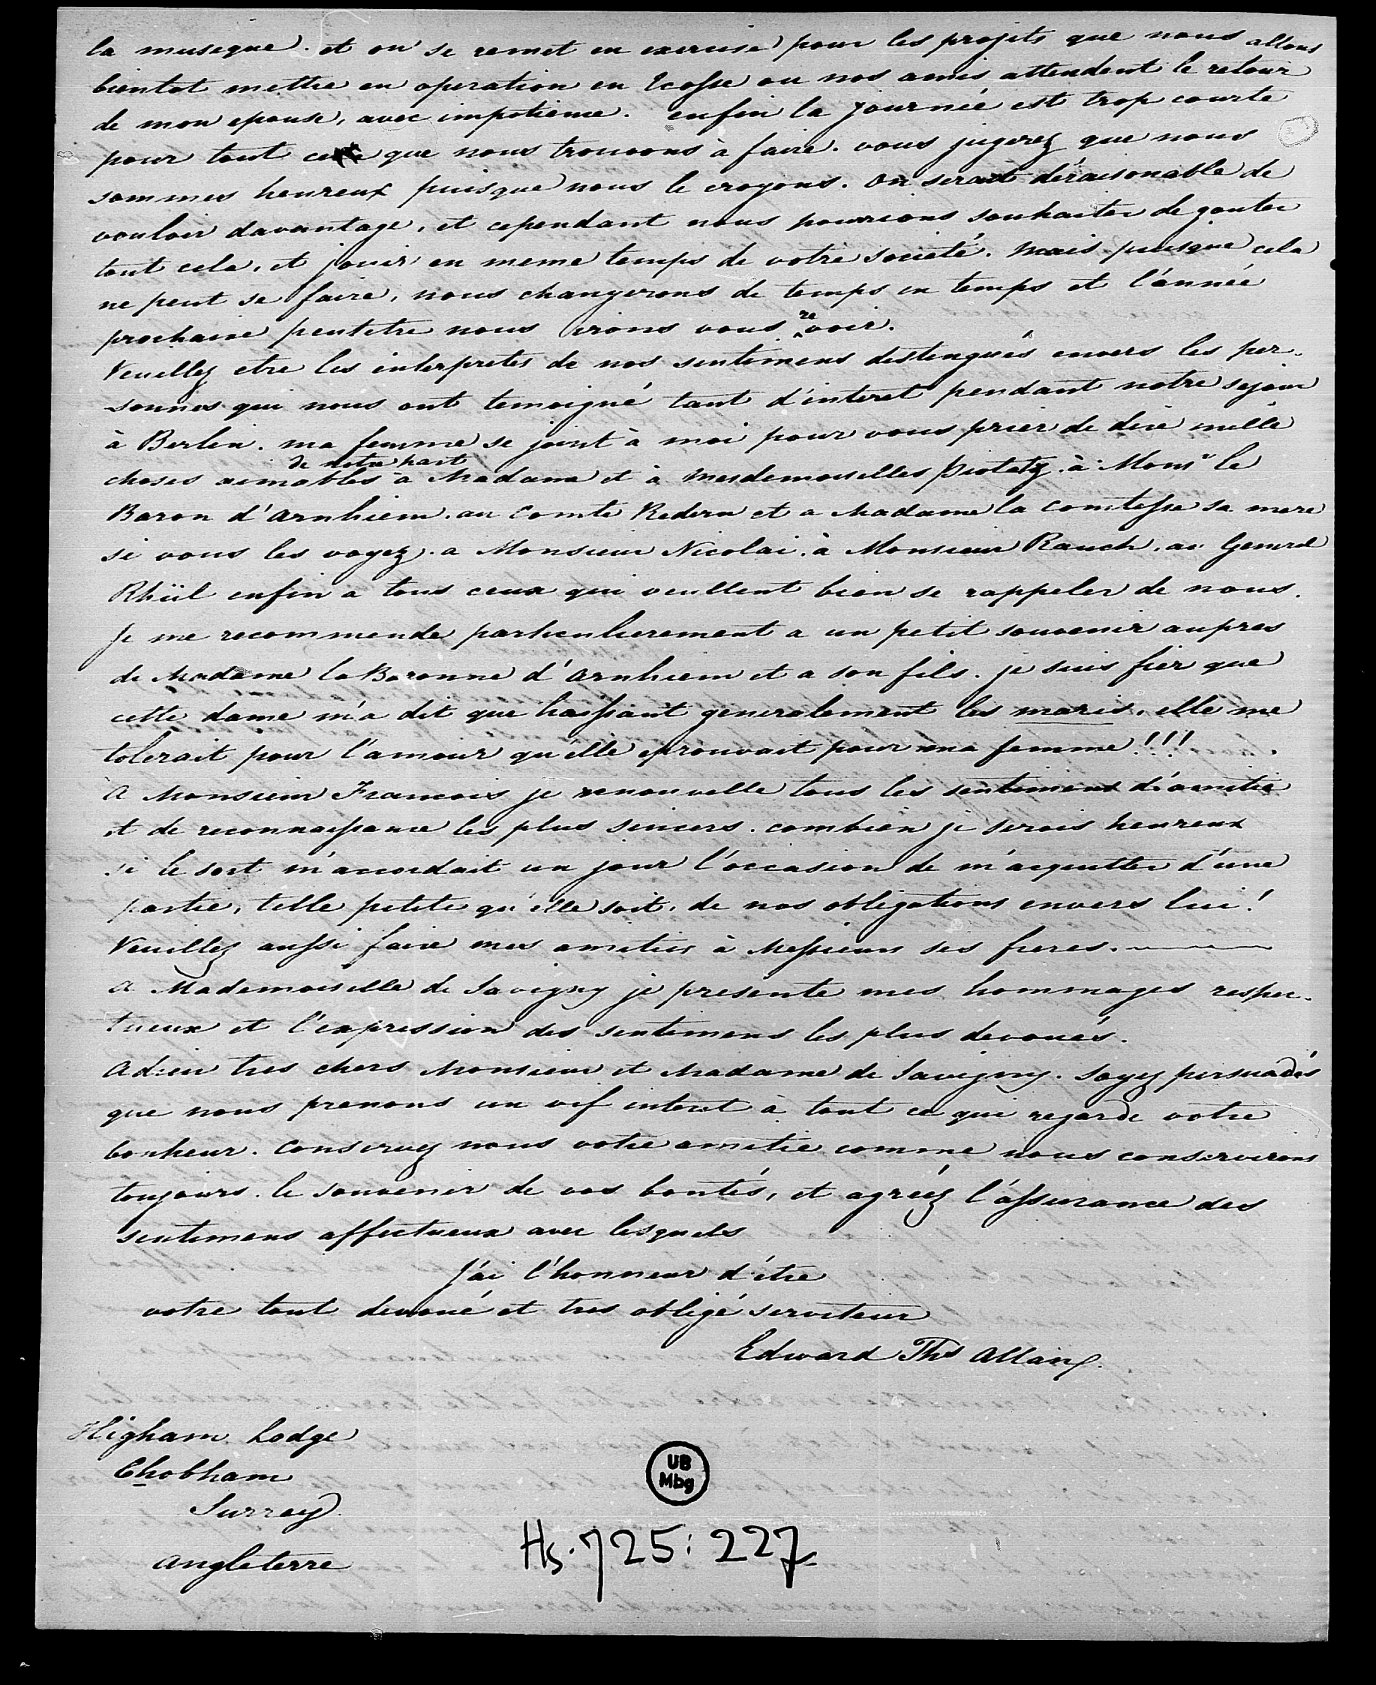 la musique. et on se remet en exercise pour les projets que nous allons
bientot mettre en operation en Ecosse ou nos amis attendent le retour
de mon epouse, avec impatience. enfin la journée est trop courte
pour tout ce que nous trouvons à faire. vous jugerez que nous
sommes heureux puisque nous le croyons. on serait déraisonable de
vouloir davantage, et cependant nous pourrions souhaiter de gouter
tout cela, et jouir en meme temps de votre societé. mais puisque cela
ne peut se faire, nous changerons de temps en temps et l'année
prochaine peutetre nous irons vous revoir.
Veuillez etre les interpretes de nos sentimens destingués envers les per-
sonnes qui nous ont temoigné tant d'interet pendant notre sejour
à Berlin. ma femme se joint à moi pour vous prier de dire mille
choses aimables de notre part à Madame et à Mesdemoiselles Pistety. à Monsr le
Baron d'Arnhiem. au Comte Redern et a Madame la Comtesse sa mere
si vous les voyez. a Monsieur Nicolai. à Monsieur Rauch. au General
Rhül enfin a tous ceux qui veullent bien se rappeler de nous.
Je me recommende particulierement a un petit souvenir aupres
de Madame la Baronne d'Arnhiem et a son fils. je suis fier que
cette dame m'a dit que haissant generalement les maris, elle me
tolerait pour l'amour qu'elle eprouvait pour ma femme!!!
A Monsieur Francois je renouvelle tous les sentimens d'amitie
et de reconnaissance les plus sincers. combien je serois heureux
si le sort m'accordait un jour l'occasion de m'acquitter d'une
partie, telle petite qu'elle soit, de nos obligations envers lui!
Veuillez aussi faire mes amities à Messieurs ses freres.
A Mademoiselle de Savigny je presente mes hommages respec-
tueux et l'expression des sentimens les plus devoués.
Adieu tres chers Monsieur et Madame de Savigny. Soyez persuadés
que nous prenons un vif interet à tout ce qui regarde votre
bonheur. Conservez nous votre amitie comme nous conserverons
toujours le souvenir de vos bontés, et agréez l'assurance des
sentimens affectueux avec lesquels
J'ai l'honneur d'être
votre tout devoué et tres obligé serviteur
Edward Ths Allan
Higham Lodge
Chobham
Surrey
Angleterre
UB
Mbg
Hs. 725: 227